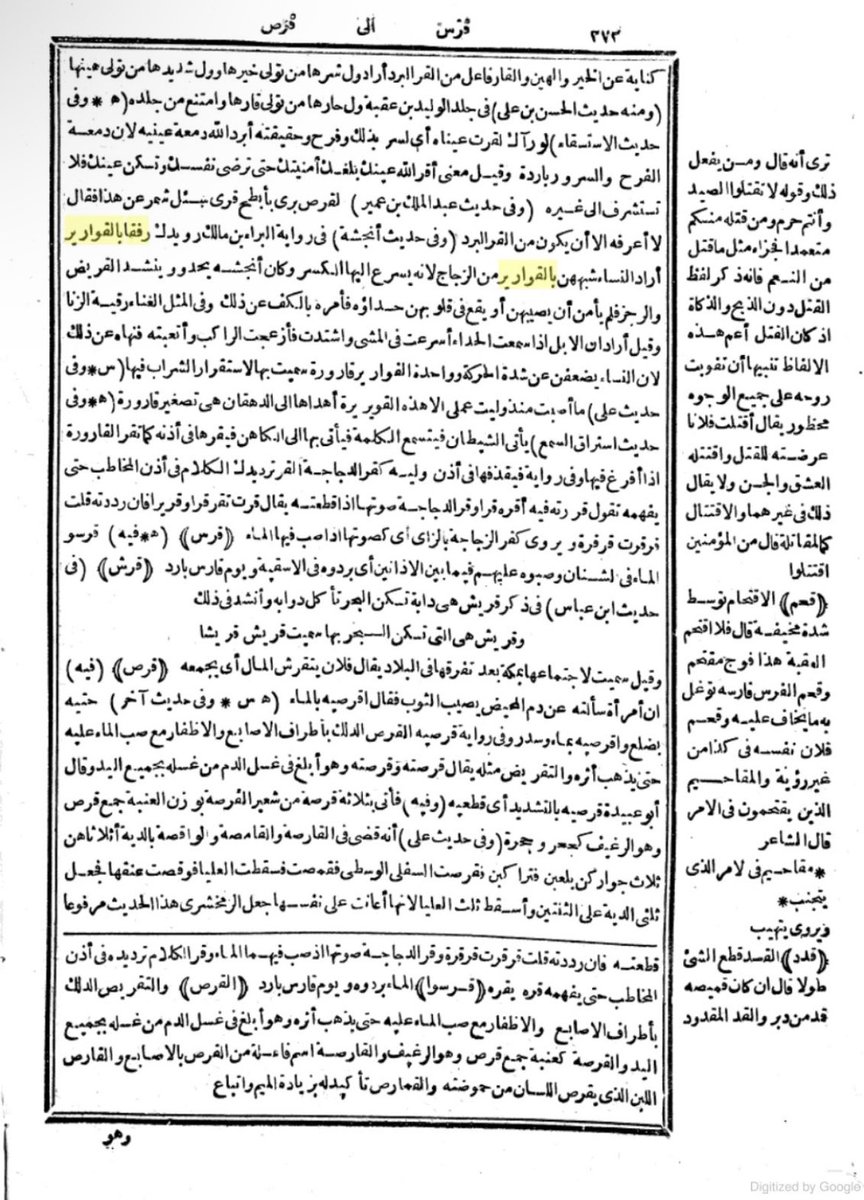 ٣٧٣
قرس الى قرص
كناية عن الخير والهين والقار فاعل من القر البرد أراد ول شرها من تولى خيرها وول شديدها من تولى هينها
(ومنه حديث الحسن بن على) فى جلد الوليد بن عقبة ول حارها من تولى قارها وامتنع من جلده (ه * وفى
حديث الاستسقاء) لو رآك لقرت عيناه أى لسر بذلك وفرح وحقيقته أبرد الله دمعة عينيه لان دمعة
الفرح والسرور باردة وقيل معنى أقر الله عينك بلغك أمنيتك حتى ترضى نفسك وتسكن عينك فلا
تستشرف الى غيره (وفى حديث عبد الملك بن عمير) لقرص برى بأبطح قرى سئل شمر عن هذا فقال
لا أعرفه الا أن يكون من القر البرد (وفى حديث أنجشة) فى رواية البراء بن مالك رويدك رفقا بالقوارير
أراد النساء شبههن بالقوارير من الزجاج لانه يسرع اليها الكسر وكان أنجشه يحدو وينشد القريض
والرجز فلم يأمن أن يصيبهن أو يقع فى قلوبهن حداؤه فأمره بالكف عن ذلك وفى المثل الغناء رقية الزنا
وقيل أراد ان الابل اذا سمعت الحداء أسرعت فى المشى واشتدت فأزعجت الراكب وأتعبته فنهاه عن ذلك
لان النساء يضعفن عن شدة الحركة وواحدة القوارير قارورة سميت بها لاستقرار الشراب فيها (س * وفى
حديث على) ما أصبت منذ وليت عملى الا هذه القويريرة أهداها الى الدهقان هى تصغير قارورة (ه * وفى
حديث استراق السمع) يأتى الشيطان فيتسمع الكلمة فيأتى بها الى الكاهن فيقرها فى أذنه كما تقر القارورة
اذا أفرغ فيها وفى رواية فيقذفها فى أذن وليه كقر الدجاجة القر ترديدك الكلام فى أذن المخاطب حتى
يفهمه تقول قررته فيه أقره قرا وقر الدجاجة صوتها اذا قطعته يقال قرت تقر قرا وقريرا فان رددته قلت
قرقرت قرقرة ويروى كقر الزجاجة بالزاى أى كصوتها اذا صب فيها الماء ((قرس)) (ه * فيه) قرسو
الماء فى لشنان وصبوه عليهم فيما بين الاذانين أى بردوه فى الاسقية ويوم قارس بارد ((قرش)) (فى
حديث ابن عباس) فى ذكر قريش هى دابة تسكن البحر تأكل دوابه وأنشد فى ذلك
وقريش هى التى تسكن البحر بها سميت قريش قريشا
وقيل سميت لاجتماعها بمكة بعد تفرقها فى البلاد يقال فلان يتقرش المال أى يجمعه ((قرص)) (فيه)
ان أمرأة سألته عن دم المحيض يصيب الثوب فقال اقرصيه بالماء (ه س * وفى حديث آخر) حتيه
بضلع واقرصيه بماء وسدر وفى رواية قرصيه القرص الدلك بأطراف الاصابع والاظفار مع صب الماء عليه
حتى يذهب أثره والتقريض مثله يقال قرصته وقرصته وهو أبلغ فى غسل الدم من غسله بجميع اليد وقال
أبو عبيدة قرصيه بالتشديد أى قطعيه (وفيه) فأتى بثلاثة قرصة من شعير القرصة بوزن العنبة جمع قرص
وهو الرغيف كجحر وجحرة (وفى حديث على) أنه قضى فى القارصة والقامصة والواقصة بالدية أثلاثا هن
ثلاث جوار كن يلعبن فتراكبن فقرصت السفلى الوسطى فقمصت فسقطت العليا فوقصت عنقها فجعل
ثلثى الدية على الثنتين وأسقط ثلث العليا لانها أعانت على نفسها جعل الزمخشرى هذا الحديث مرفوعا
قطعته فان رددته قلت قرقرت قرقرة وقر الدجاجة صوتها اذ صب فيهما الماء وقر الكلام ترديده فى أذن
المخاطب حتى يفهمه قره يقره ((قرسوا)) الماء بردوه ويوم قارس بارد ((القرص)) والتقريص الدلك
بأطراف الاصابع والاظفار مع صب الماء عليه حتى يذهب أثره وهو أبلغ فى غسل الدم من غسله بجميع
اليد والقرصة كعنبة جمع قرص وهو الرغيف والقارصة اسم فاعلة من القرص بالاصابع والقارص
اللبن الذى يقرص اللسان من حموضته والقمارص تأكيد له بزيادة الميم واتباع
وهو
ترى أنه قال ومن يفعل
ذلك وقوله لا تقتلوا الصيد
وأنتم حرم ومن قتله منكم
متعمدا الجزاء مثل ما قتل
من النعم فانه ذكر لفظ
القتل دون الذبح والذكاة
اذ كان القتل أعم هذه
الالفاظ تنبيها أن تفويت
روحه على جميع الوجوه
محظور يقال أقتلت فلانا
عرضته للقتل واقتتله
العشق والجن ولا يقال
ذلك فى غيرهما والاقتتال
كالمقاتلة قال من المؤمنين
اقتتلوا
((قحم)) الاقتحام توسط
شدة مخيفة قال فلا اقتحم
العقبة هذا فوج مقتحم
وقحم الفرس فارسه توغل
به ما يخاف عليه وقحم
فلان نفسه فى كذا من
غير روية والمقاحيم
الذين يقتحمون فى الامر
قال الشاعر
*مقاحيم فى لامر الذى
يتجنب*
ويروى يتهيب
((قدد)) القد قطع الشئ
طولا قال ان كان قميصه
قد من دبر والقد المقدود
Digitized by Google